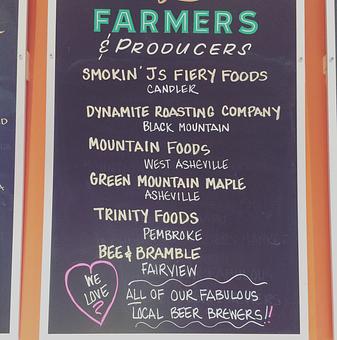 FARMERS
& PRODUCERS
SMOKIN' J'S FIERY FOODS
CANDLER
DYNAMITE ROASTING COMPANY
BLACK MOUNTAIN
MOUNTAIN FOODS
WEST ASHEVILLE
GREEN MOUNTAIN MAPLE
ASHEVILLE
TRINITY FOODS
PEMBROKE
BEE & BRAMBLE
FAIRVIEW
WE
LOVE
ALL OF OUR FABULOUS
LOCAL BEER BREWERS!!